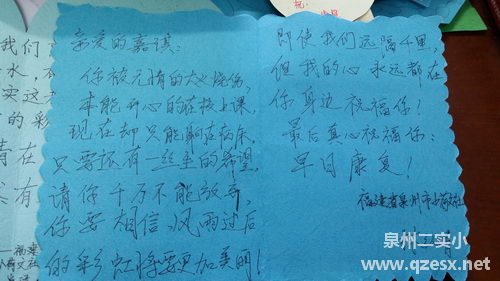 祝:
我们
水,
实这
的彩
亲爱的嘉谋:
你被无情的大火烧伤,
本能开心的在校上课,
现在却只能躺在病床,
只要还有一丝丝的希望,
请你千万不能放弃,
你要相信,风雨过后
的彩虹将要更加美丽!
即使我们远隔千里,
但我的心永远都在
你身边祝福你!
最后真心祝福你:
早日康复!
福建省泉州市
泉州二实小
www.qzesx.net